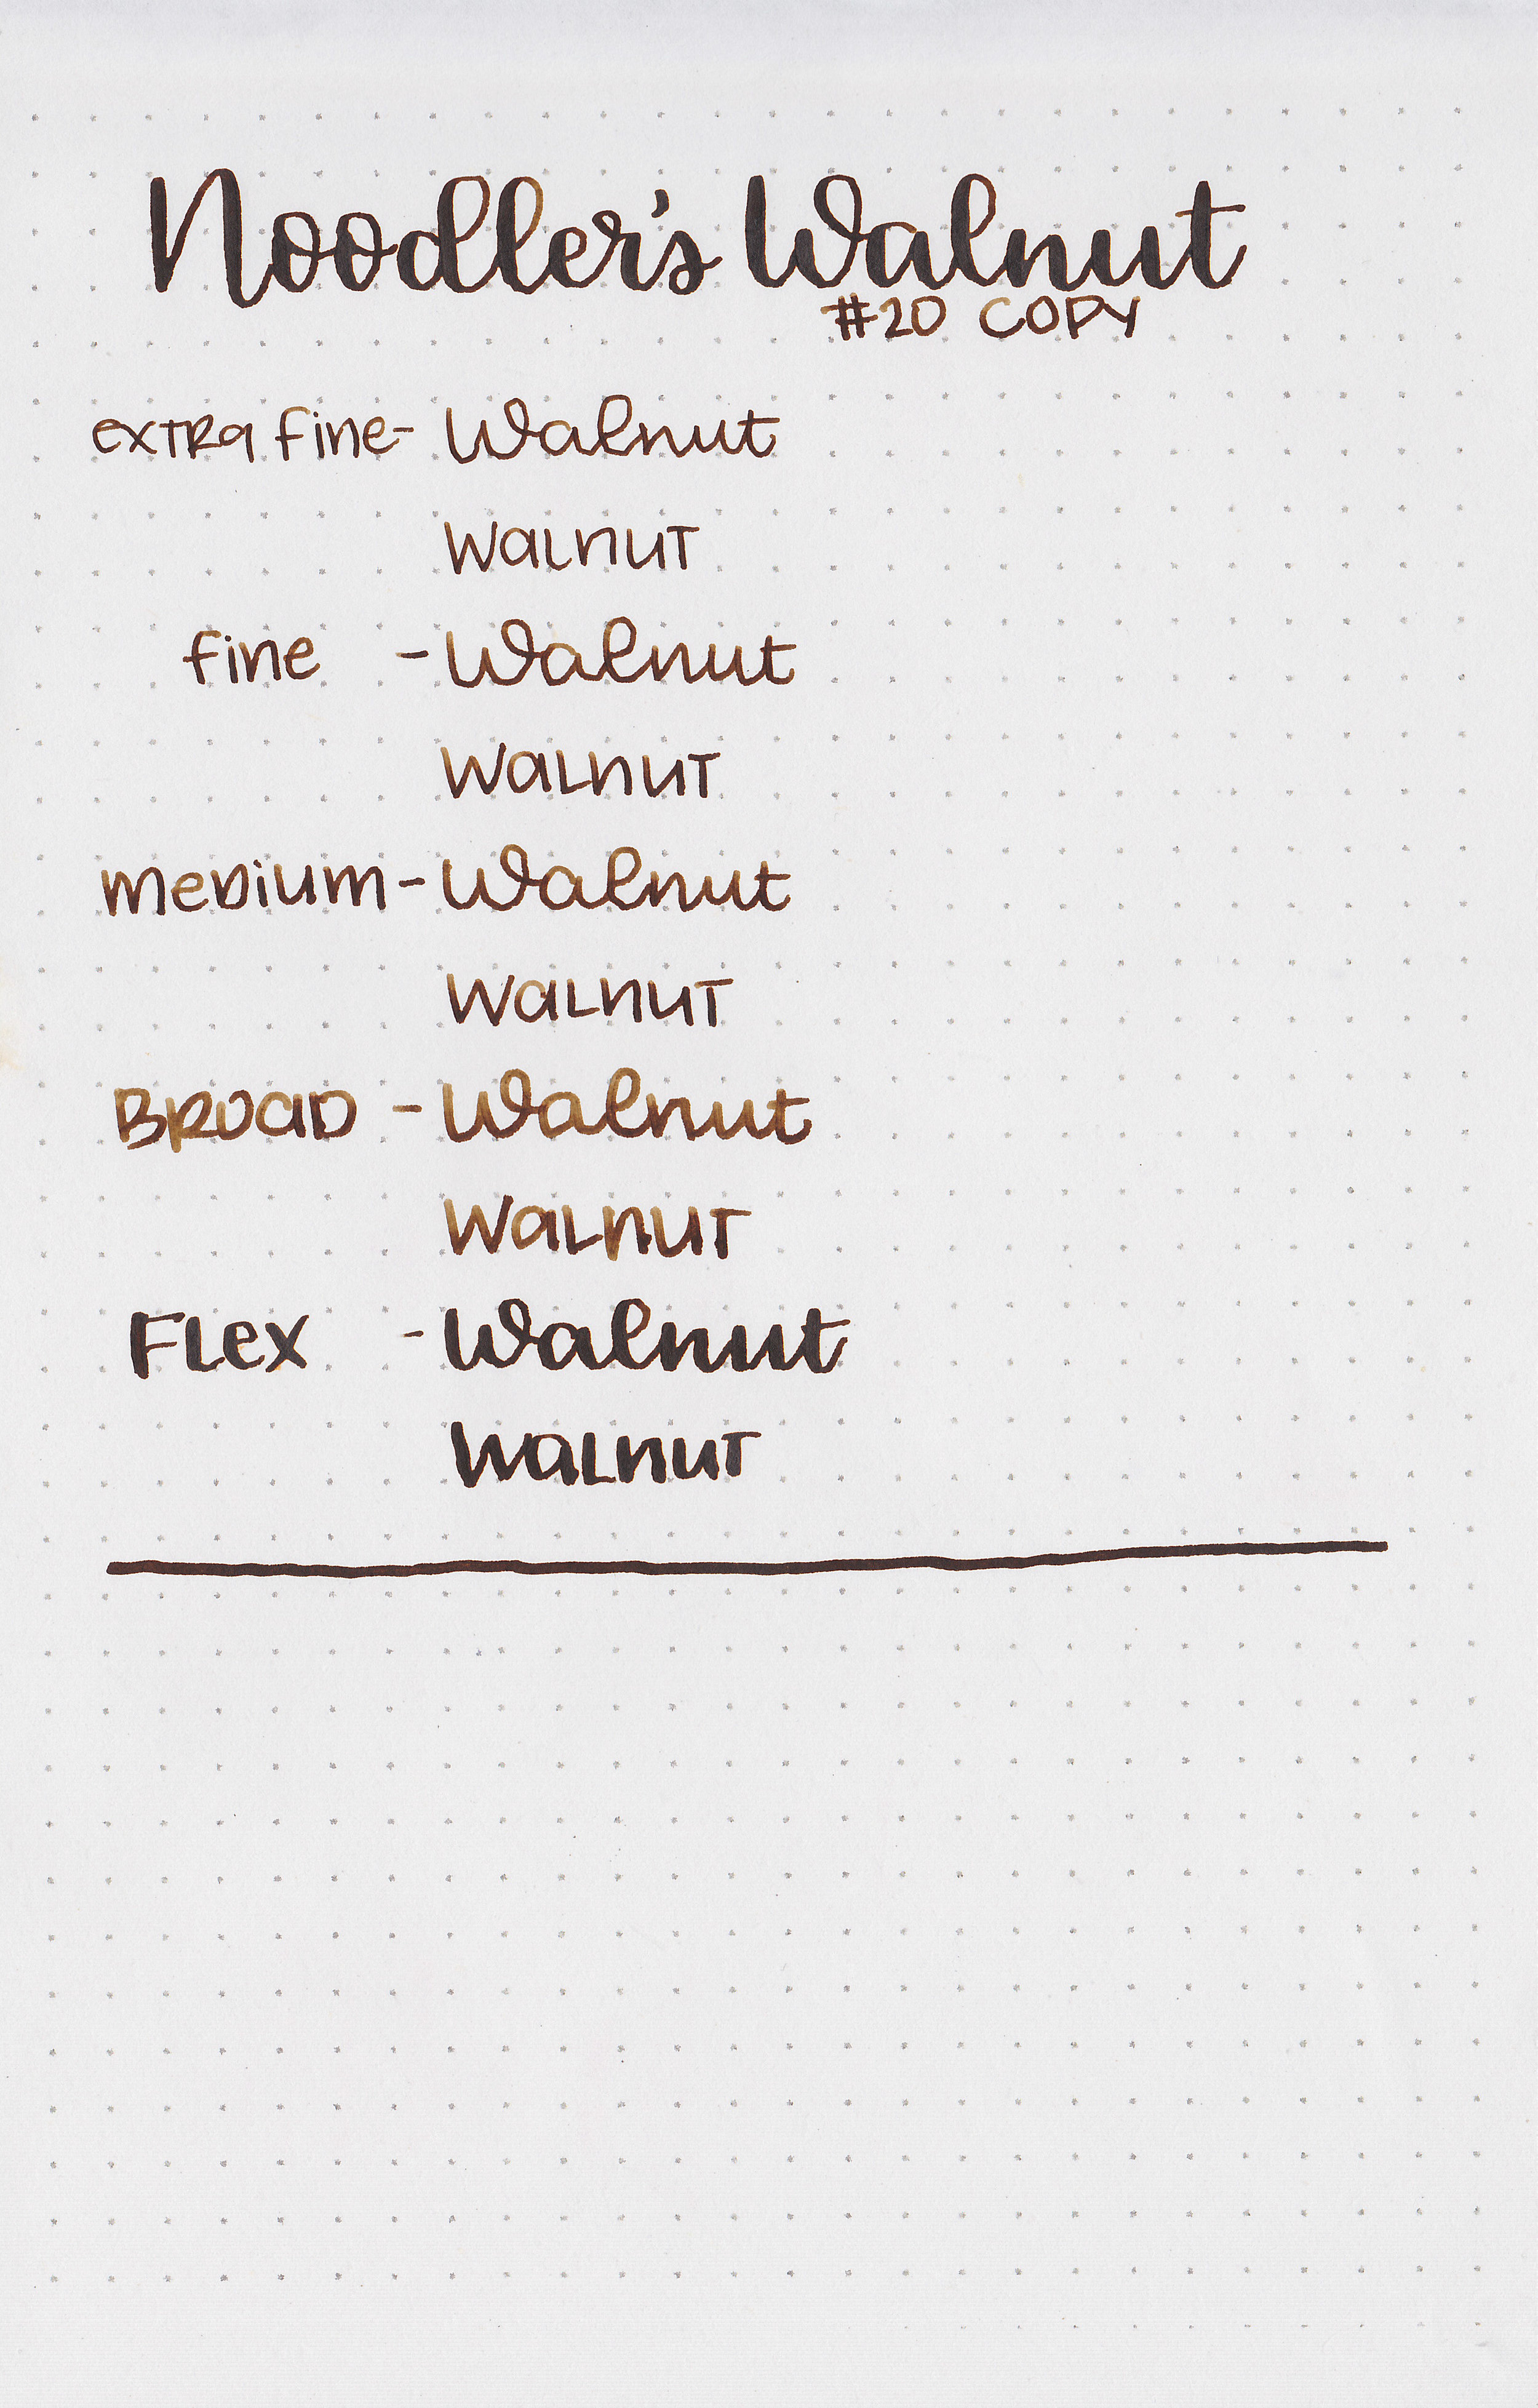 Noodler's Walnut
#20 COPY
extra fine- Walnut
Walnut
fine - Walnut
Walnut
Medium - Walnut
Walnut
Broad - Walnut
Walnut
Flex - Walnut
Walnut